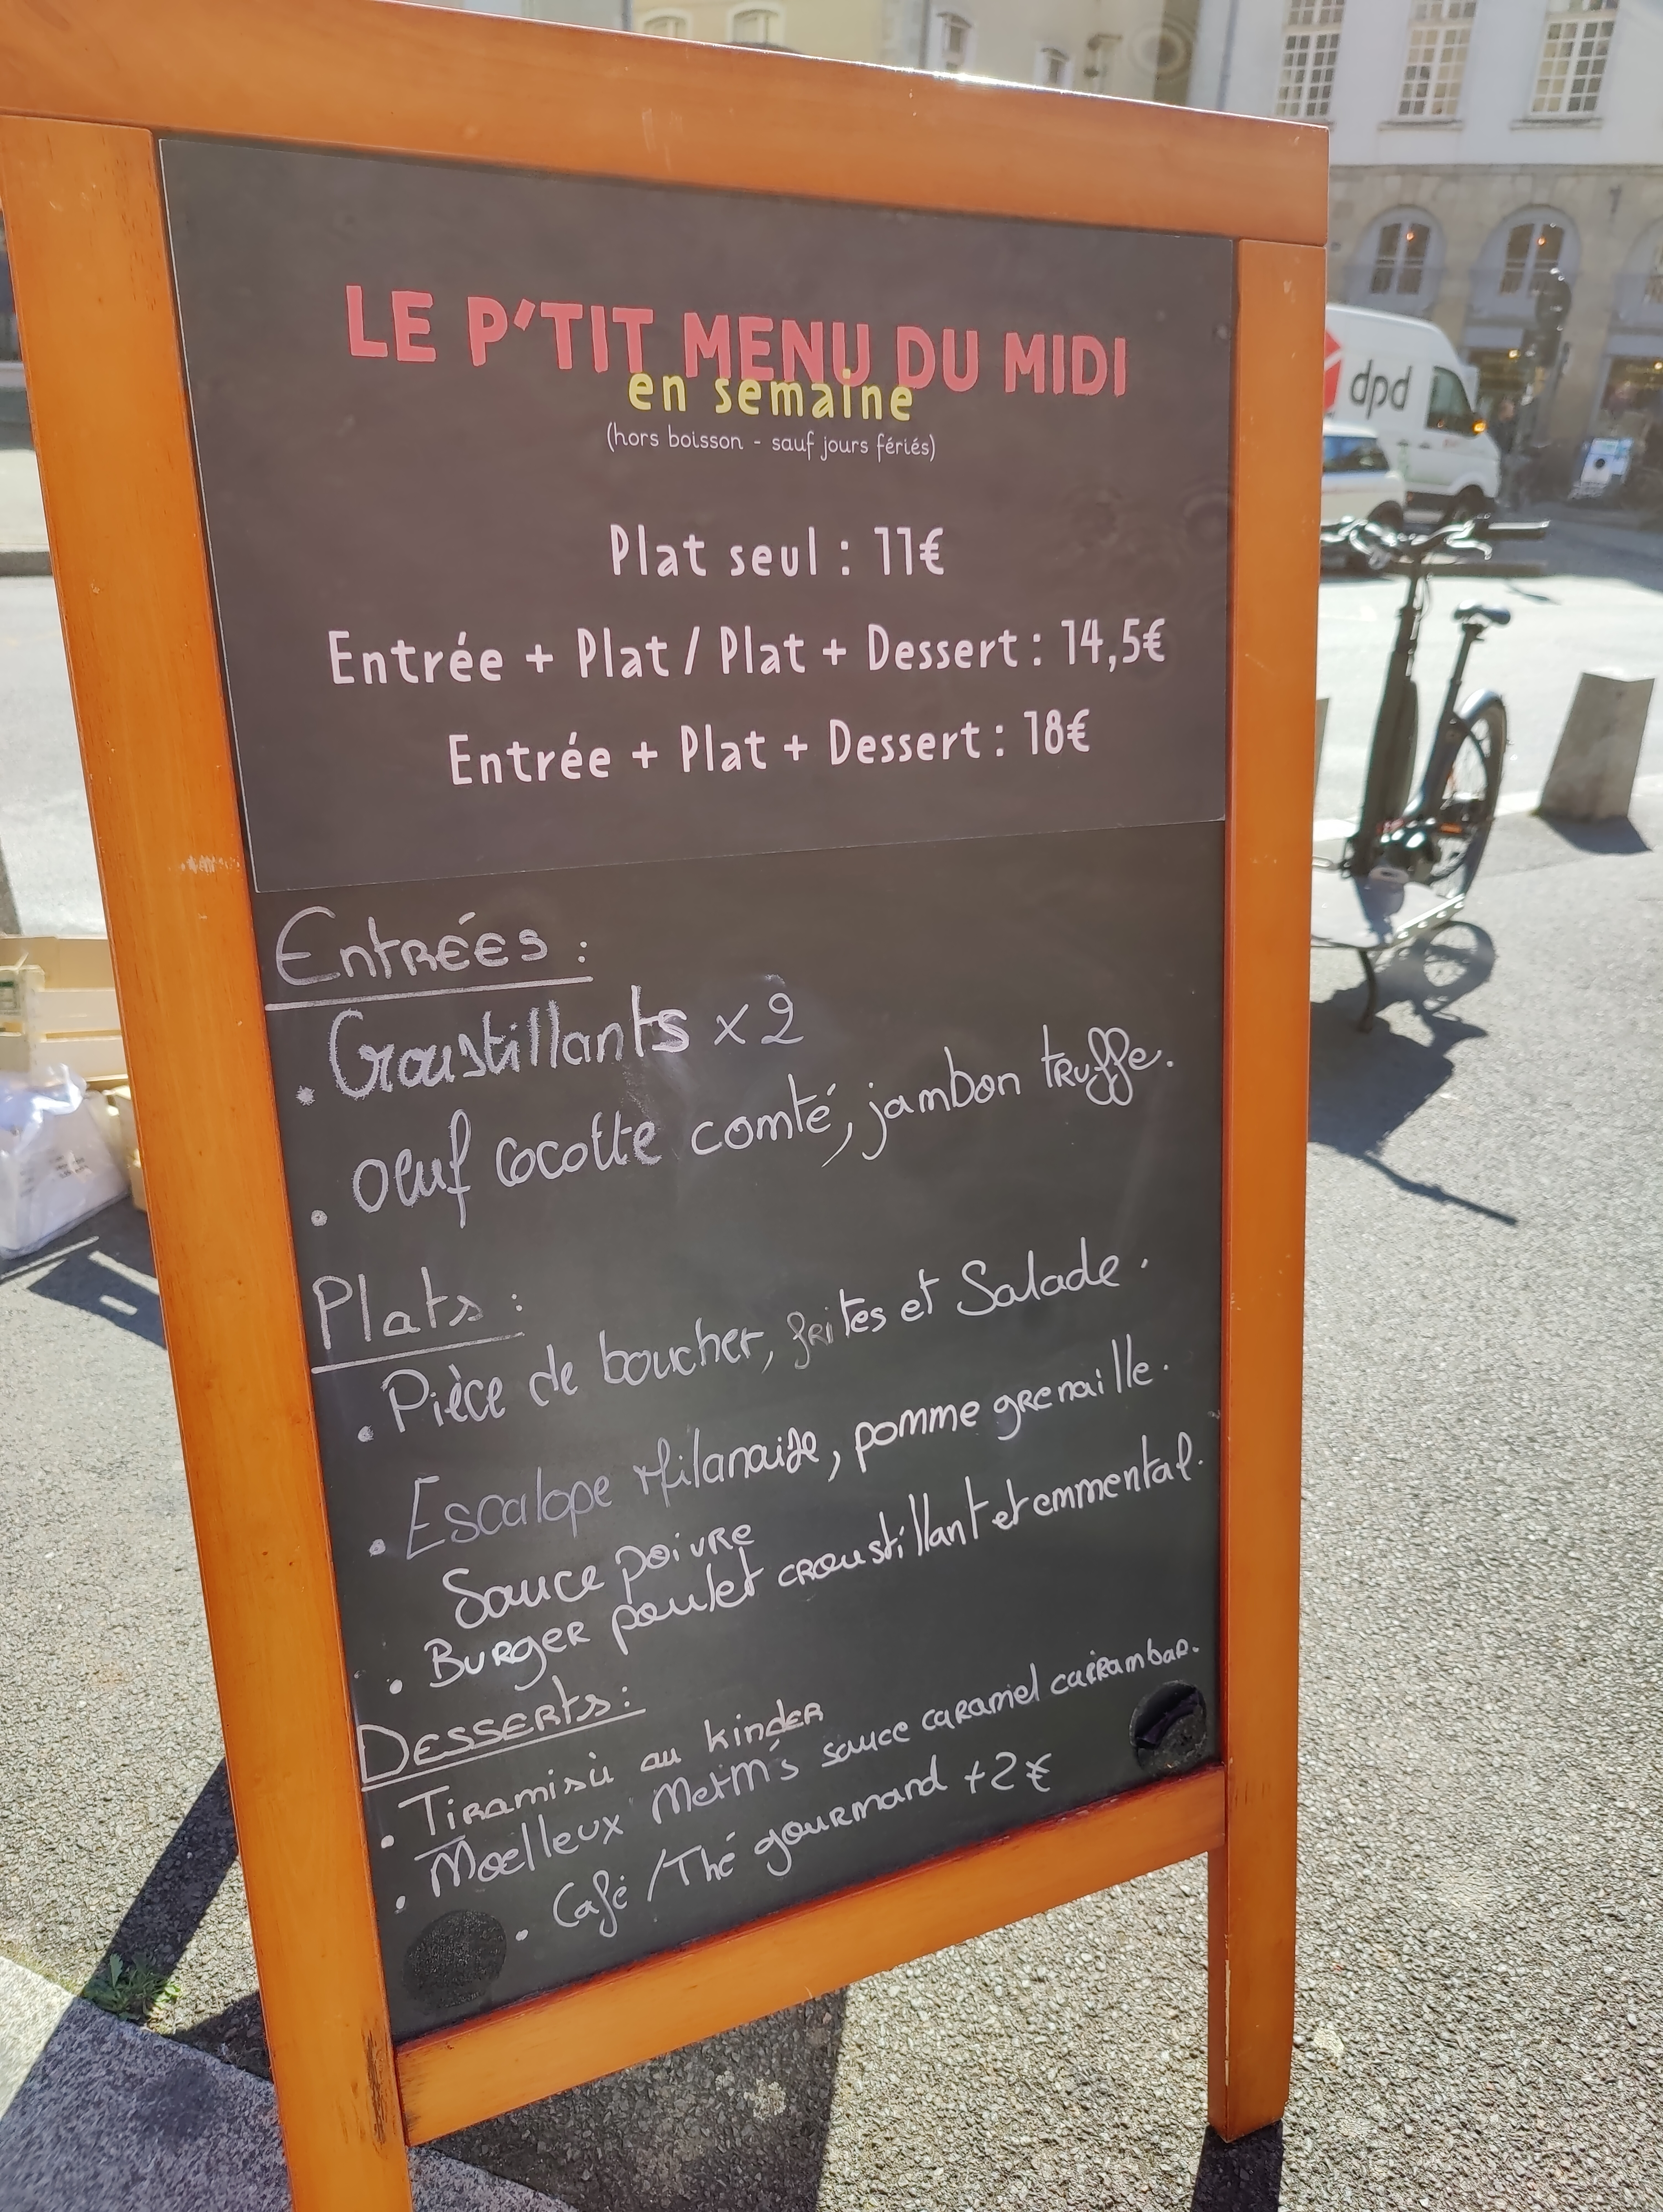 LE P'TIT MENU DU MIDI
en semaine
(hors boisson - sauf jours fériés)
Plat seul : 11€
Entrée + Plat / Plat + Dessert : 14,5€
Entrée + Plat + Dessert : 18€
Entrées :
. Croustillants x 2
. oeuf cocotte comté, jambon truffe.
Plats :
. Pièce de boucher, frites et Salade.
. Escalope Milanaise, pomme grenaille.
Sauce poivre
. Burger poulet croustillant et emmental.
Desserts :
. Tiramisù au kinder
. Moelleux MetM's sauce caramel carrambar.
. Café /Thé gourmand +2€
dpd